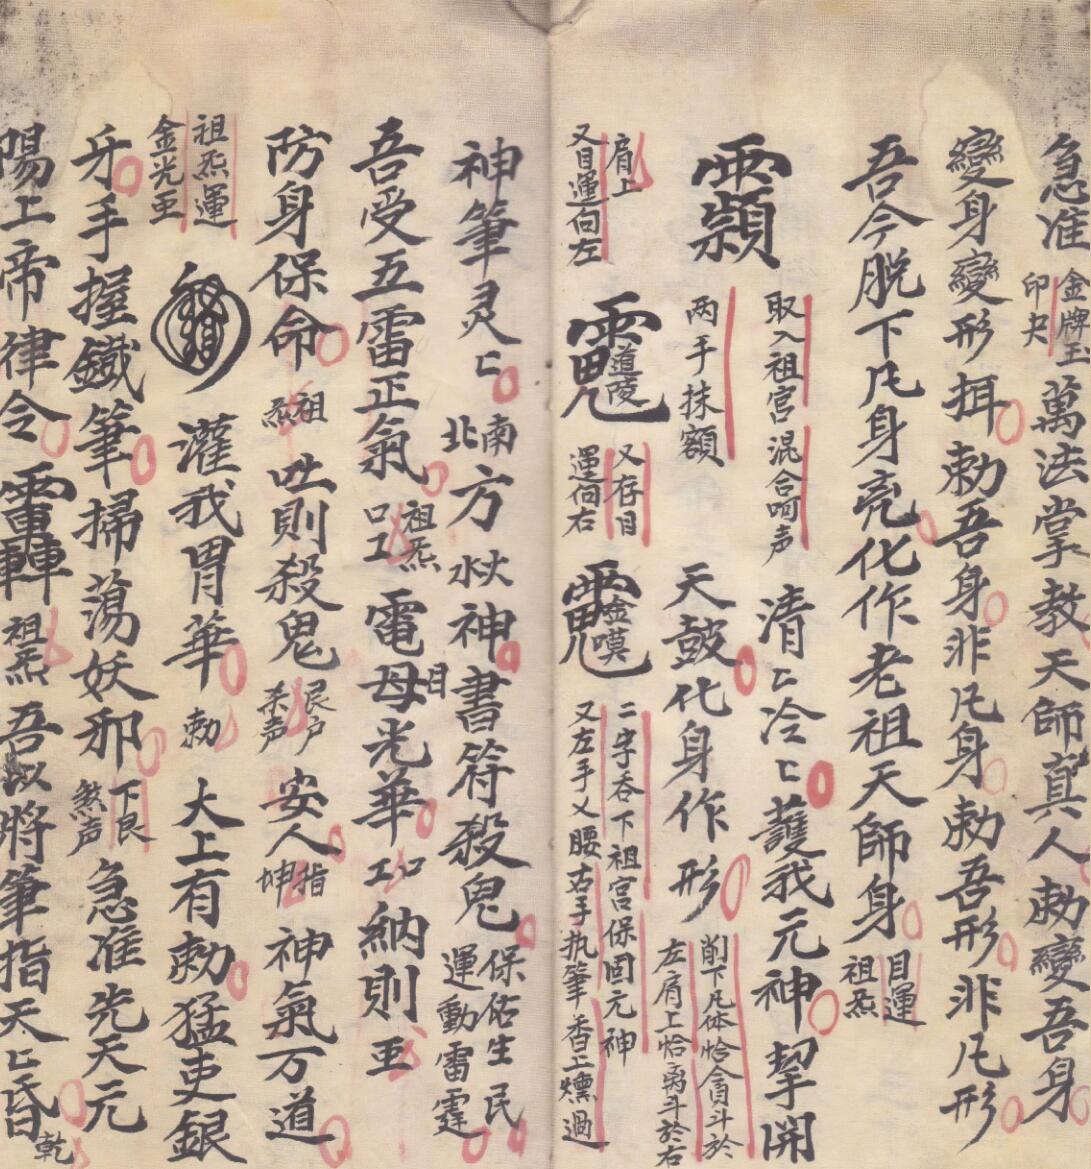 急准金牌王印夬萬法掌教天師真人勅變吾身
變身變形揖勅吾身非凡身勅吾形非凡形
吾今脱下凡身亮化作老祖天師身目運祖炁
取入祖宫混合呵声清匕冷匕護我元神挈開
两手抹額天鼓化身作形削下凡体恰貪斗於左肩上恰斗於右
肩上又目運向左道陵又存目運向右金嘆二字吞下祖宫保固元神又左手乂腰右手执筆香上燻過
神筆灵匕南北方神書符殺鬼保佑生民運動雷霆
吾受五雷正氣祖炁電母目光華納則
防身保命祖炁吐則殺鬼艮户杀声安人指坤神氣万道
祖炁運金光灌我胃華勅大上有勅猛吏銀
牙手握鐵筆掃蕩妖邪下艮煞声急准先天元
陽上帝律令祖炁吾以將筆指天匕昏乾